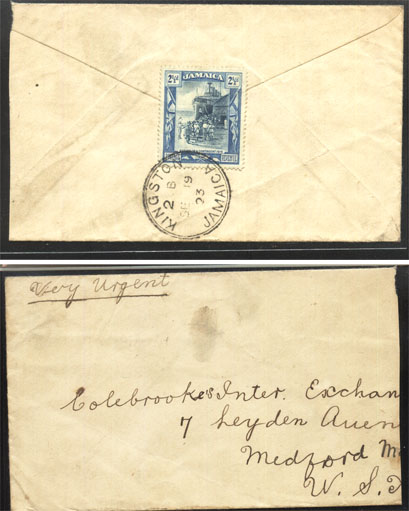 2½d JAMAICA 2½d
KINGSTON JAMAICA
2 B
SP 19
23
Very Urgent
Colebrooke's Inter. Exchan
7 Leyden Auen
Medford M
U. S.